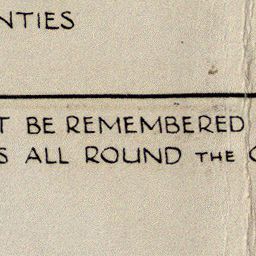 NTIES
T BE REMEMBERED
S ALL ROUND THE